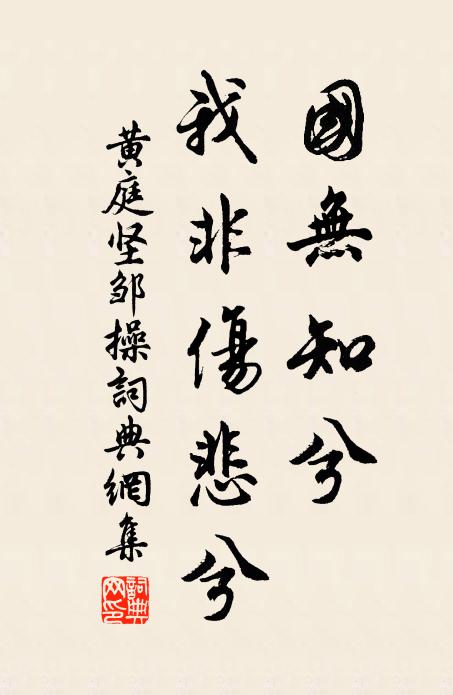 國無知兮
我非傷悲兮
黄庭坚邹操詞典網集
詞典网印